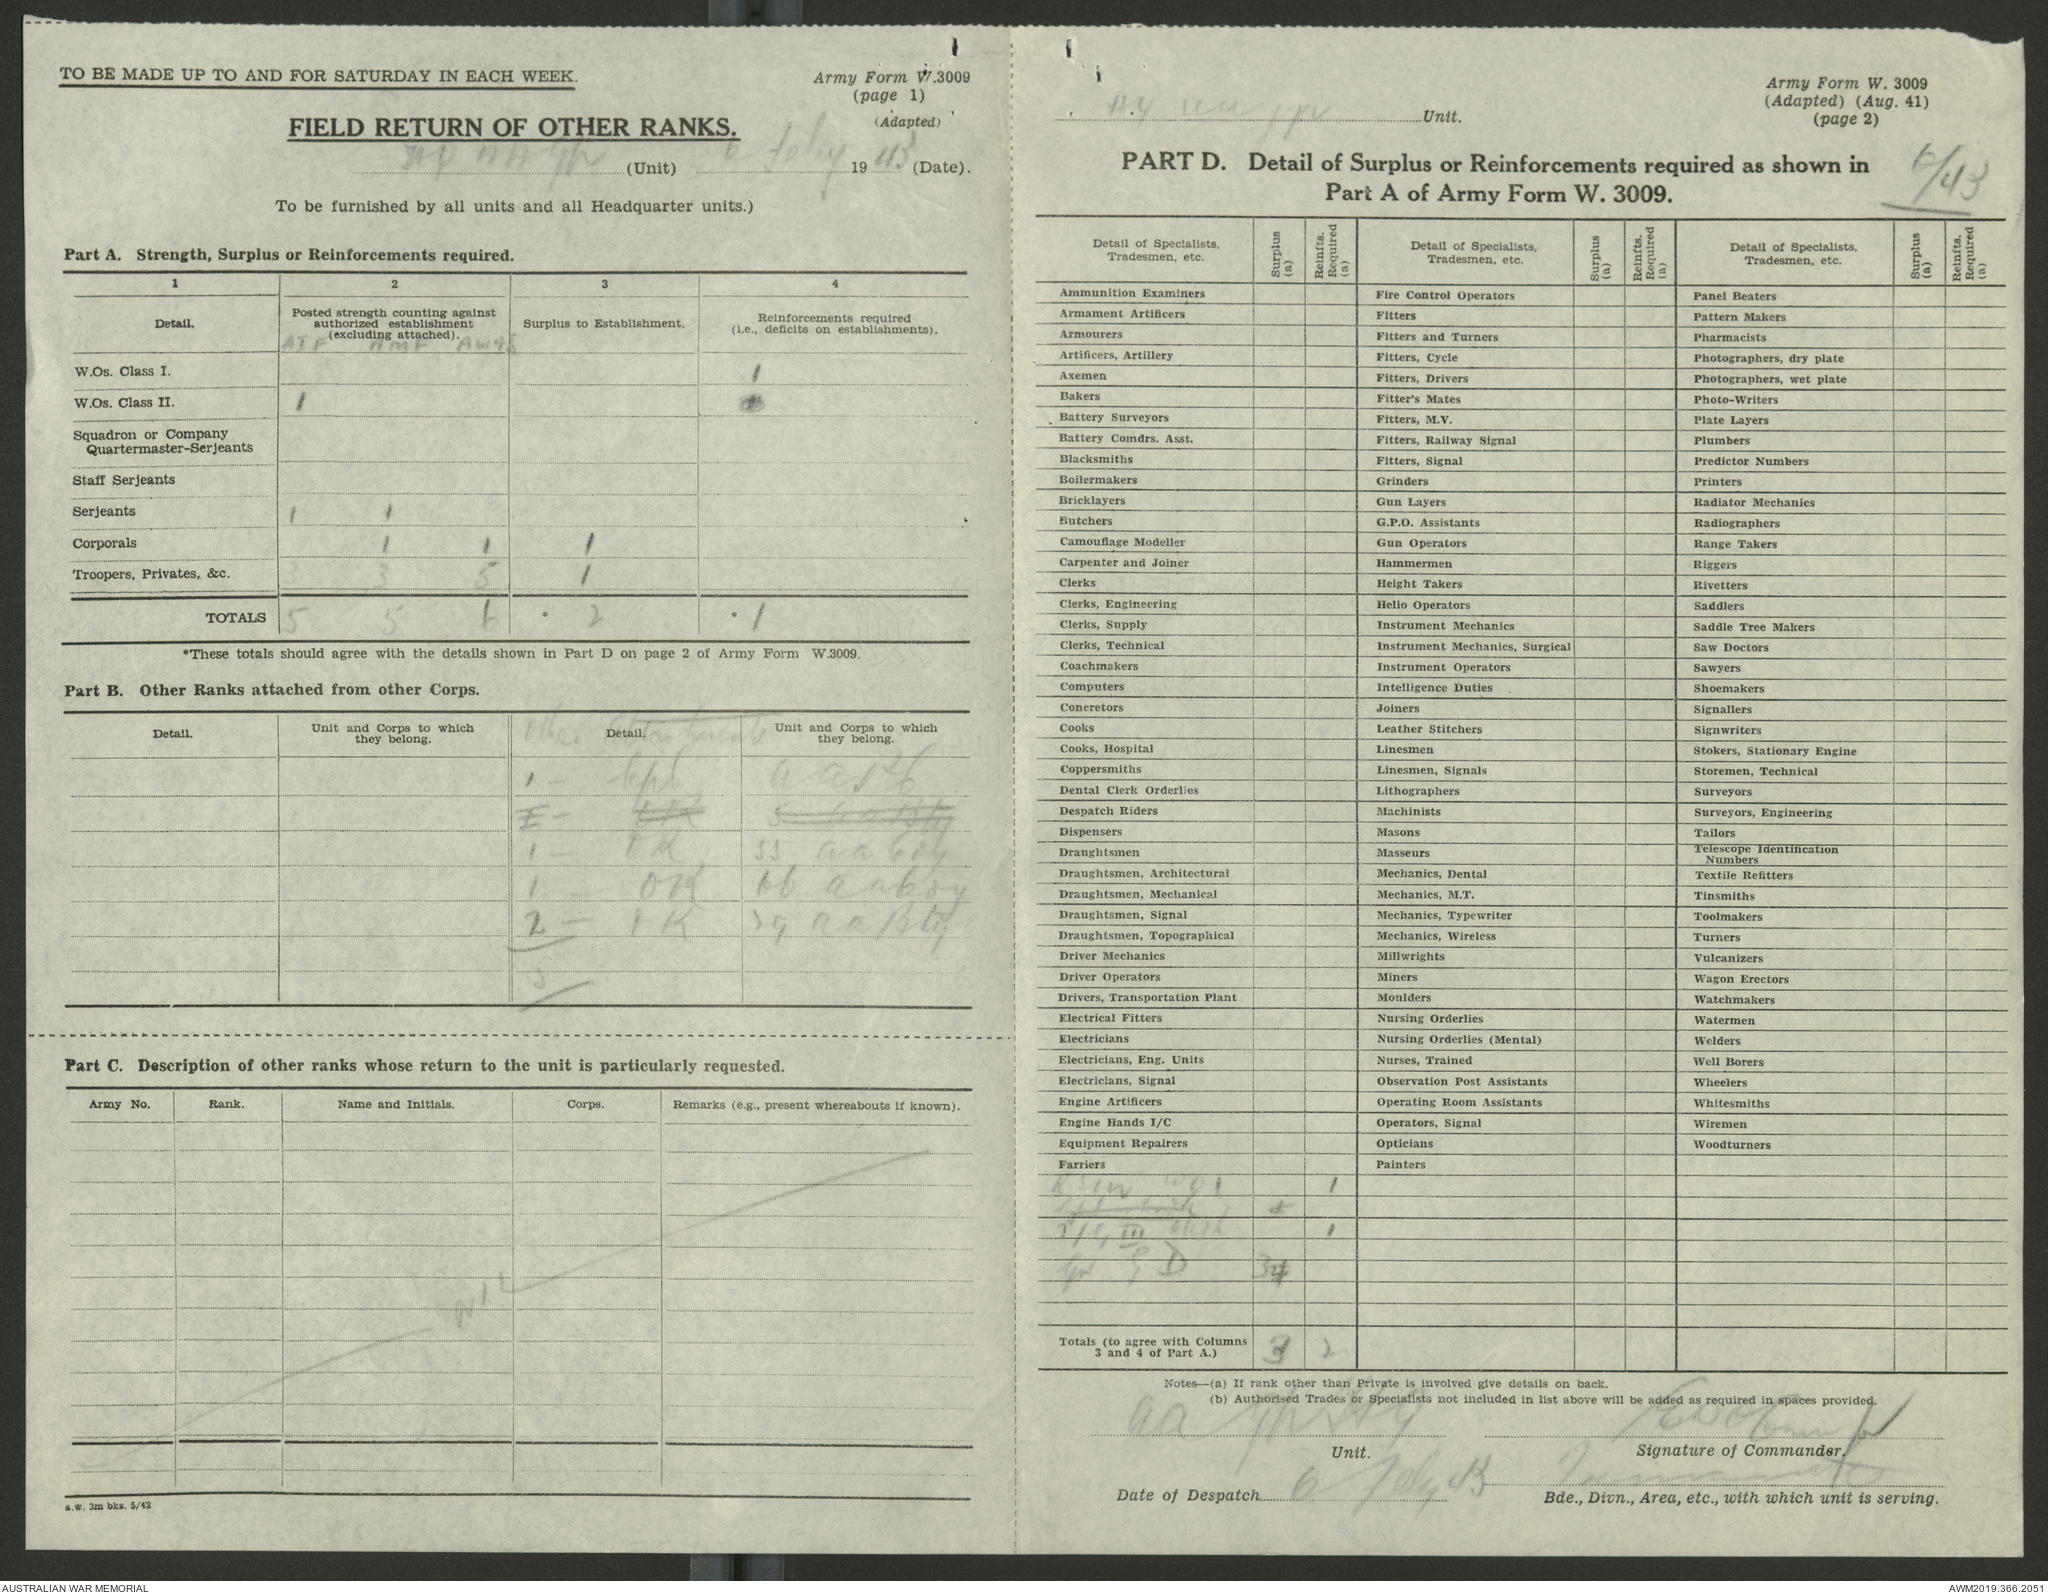 TO BE MADE UP TO AND FOR SATURDAY IN EACH WEEK.
Army Form W.3009
(page 1)
(Adapted)
FIELD RETURN OF OTHER RANKS.
(Unit) 6 Feby 1943 (Date).
To be furnished by all units and all Headquarter units.)
Part A. Strength, Surplus or Reinforcements required.
1 2 3 4
Detail. Posted strength counting against authorized establishment (excluding attached). Surplus to Establishment. Reinforcements required (i.e., deficits on establishments).
AIF AMF AWAS
W.Os. Class I. 1
W.Os. Class II. 1
Squadron or Company Quartermaster-Serjeants
Staff Serjeants
Serjeants 1 1
Corporals 1 1 1
Troopers, Privates, &c. 3 3 5 1
TOTALS 5 5 6 * 2 * 1
*These totals should agree with the details shown in Part D on page 2 of Army Form W.3009.
Part B. Other Ranks attached from other Corps.
Detail. Unit and Corps to which they belong. Detail. Unit and Corps to which they belong.
1 —
1 — 55 aa bty
1 — 66 aa bty
2 — 39 aa Bty
5
Part C. Description of other ranks whose return to the unit is particularly requested.
Army No. Rank. Name and Initials. Corps. Remarks (e.g., present whereabouts if known).
NIL
a.w. 3m bks. 5/42
Army Form W. 3009
(Adapted) (Aug. 41)
(page 2)
Unit.
6/43
PART D. Detail of Surplus or Reinforcements required as shown in
Part A of Army Form W. 3009.
Detail of Specialists, Tradesmen, etc. Surplus (a) Reinfts. Required (a) Detail of Specialists, Tradesmen, etc. Surplus (a) Reinfts. Required (a) Detail of Specialists, Tradesmen, etc. Surplus (a) Reinfts. Required (a)
Ammunition Examiners Fire Control Operators Panel Beaters
Armament Artificers Fitters Pattern Makers
Armourers Fitters and Turners Pharmacists
Artificers, Artillery Fitters, Cycle Photographers, dry plate
Axemen Fitters, Drivers Photographers, wet plate
Bakers Fitter's Mates Photo-Writers
Battery Surveyors Fitters, M.V. Plate Layers
Battery Comdrs. Asst. Fitters, Railway Signal Plumbers
Blacksmiths Fitters, Signal Predictor Numbers
Boilermakers Grinders Printers
Bricklayers Gun Layers Radiator Mechanics
Butchers G.P.O. Assistants Radiographers
Camouflage Modeller Gun Operators Range Takers
Carpenter and Joiner Hammermen Riggers
Clerks Height Takers Rivetters
Clerks, Engineering Helio Operators Saddlers
Clerks, Supply Instrument Mechanics Saddle Tree Makers
Clerks, Technical Instrument Mechanics, Surgical Saw Doctors
Coachmakers Instrument Operators Sawyers
Computers Intelligence Duties Shoemakers
Concretors Joiners Signallers
Cooks Leather Stitchers Signwriters
Cooks, Hospital Linesmen Stokers, Stationary Engine
Coppersmiths Linesmen, Signals Storemen, Technical
Dental Clerk Orderlies Lithographers Surveyors
Despatch Riders Machinists Surveyors, Engineering
Dispensers Masons Tailors
Draughtsmen Masseurs Telescope Identification Numbers
Draughtsmen, Architectural Mechanics, Dental Textile Refitters
Draughtsmen, Mechanical Mechanics, M.T. Tinsmiths
Draughtsmen, Signal Mechanics, Typewriter Toolmakers
Draughtsmen, Topographical Mechanics, Wireless Turners
Driver Mechanics Millwrights Vulcanizers
Driver Operators Miners Wagon Erectors
Drivers, Transportation Plant Moulders Watchmakers
Electrical Fitters Nursing Orderlies Watermen
Electricians Nursing Orderlies (Mental) Welders
Electricians, Eng. Units Nurses, Trained Well Borers
Electricians, Signal Observation Post Assistants Wheelers
Engine Artificers Operating Room Assistants Whitesmiths
Engine Hands I/C Operators, Signal Wiremen
Equipment Repairers Opticians Woodturners
Farriers Painters
RSM WO1 1
III 1
D 3
Totals (to agree with Columns 3 and 4 of Part A.) 3 2
Notes—(a) If rank other than Private is involved give details on back.
(b) Authorised Trades or Specialists not included in list above will be added as required in spaces provided.
Unit.
Signature of Commander.
Date of Despatch 6 Feby 43
Bde., Divn., Area, etc., with which unit is serving.
AUSTRALIAN WAR MEMORIAL
AWM2019.366.2051